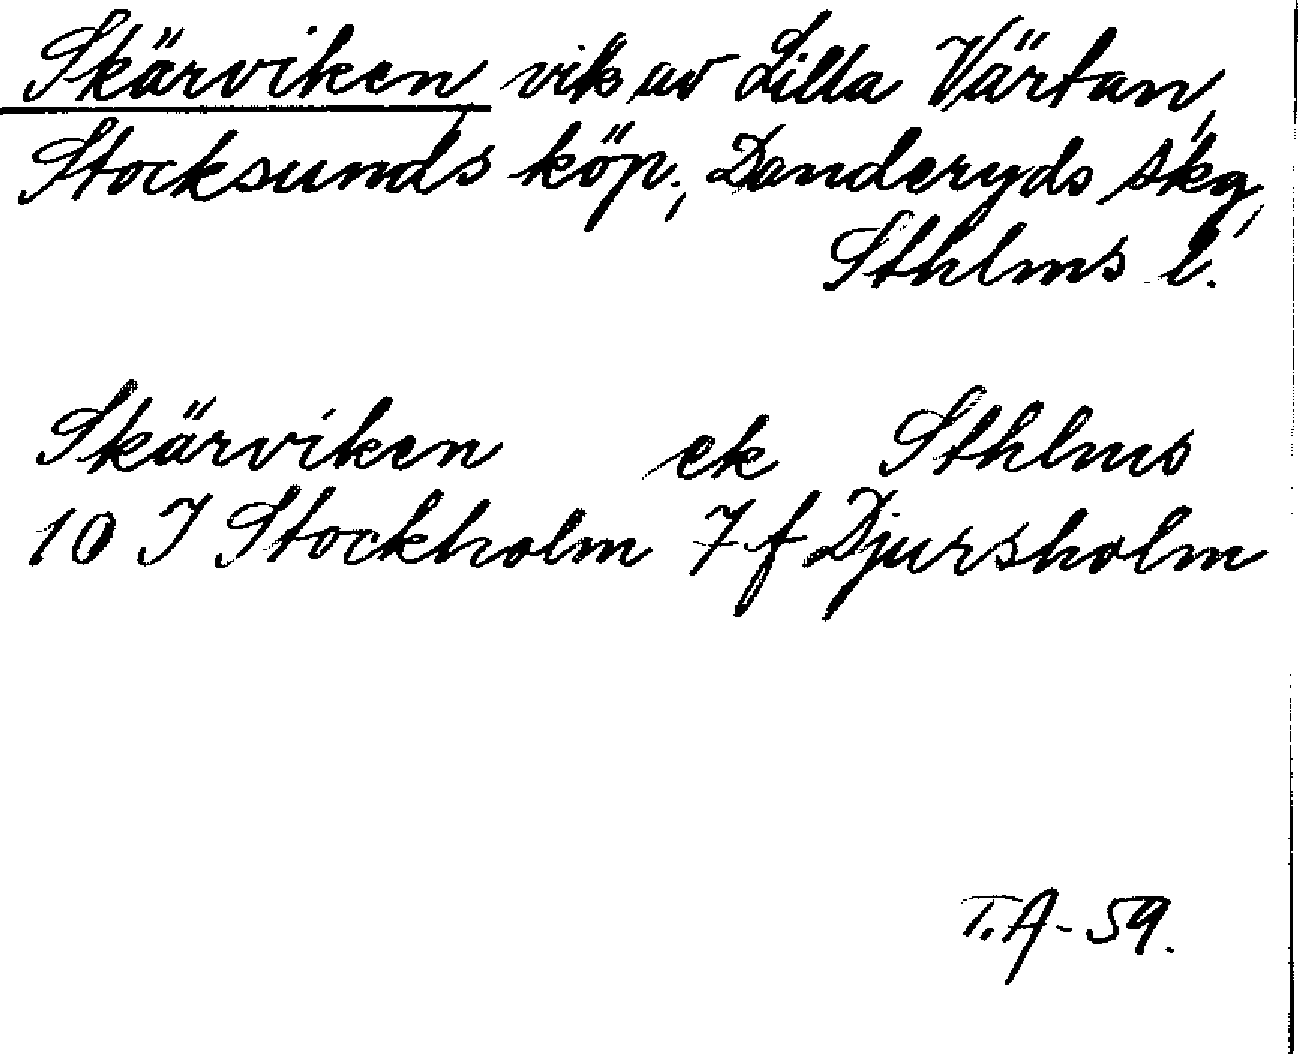 Skärviken, vik av Lilla Värtan,
Stocksunds köp., Danderyds skg,
Sthlms l.
Skärviken ek Sthlms
10 I Stockholm 7 f Djursholm
T.A-59.